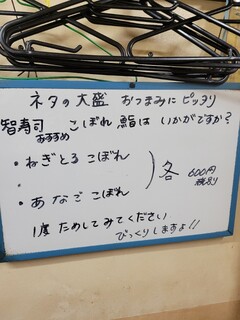 ネタの大盛 おつまみに ピッタリ
智寿司 こぼれ鮨は いかがですか?
おすすめ
・ねぎとろ こぼれ
・あなご こぼれ
各 600円
税別
1度 ためしてみてください
びっくりしますよ!!